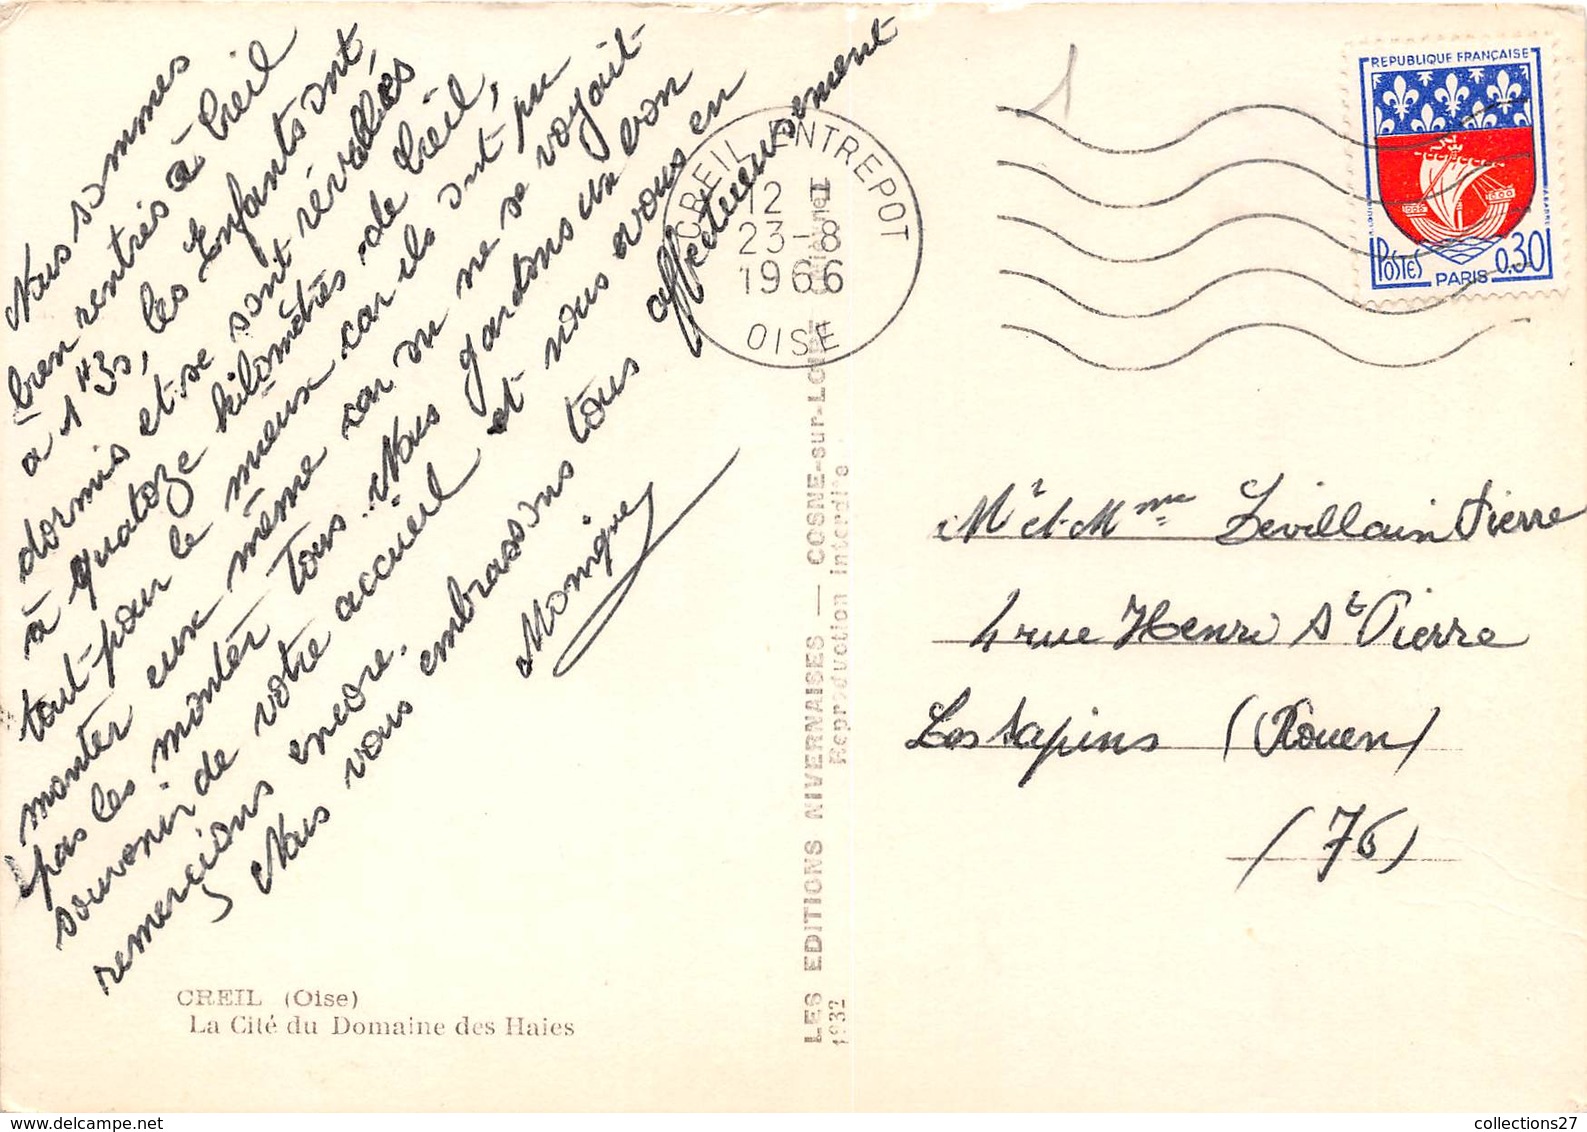 Nous sommes
bien rentrés à Creil
à 1H30, les Enfants ont,
dormis et se sont réveillés
à quatoze kilomètres de Creil,
tout pour le mieux car ils ont pu
monter eux même car on ne se voyait
pas les monter tous. Nous gardons un bon
souvenir de votre accueil et nous vous en
remercions encore.
Nous vous embrassons tous affectueusement
Monique
CREIL (Oise)
La Cité du Domaine des Haies
LES EDITIONS NIVERNAISES — COSNE-sur-LOIRE
Reproduction interdite
1932
CREIL ENTREPOT
12 H
23-8
1966
OISE
REPUBLIQUE FRANÇAISE
POSTES
PARIS
0,30
1
Mr et Mme Levillain Pierre
4 rue Henri St Pierre
Les Sapins (Rouen)
(76)
collections27